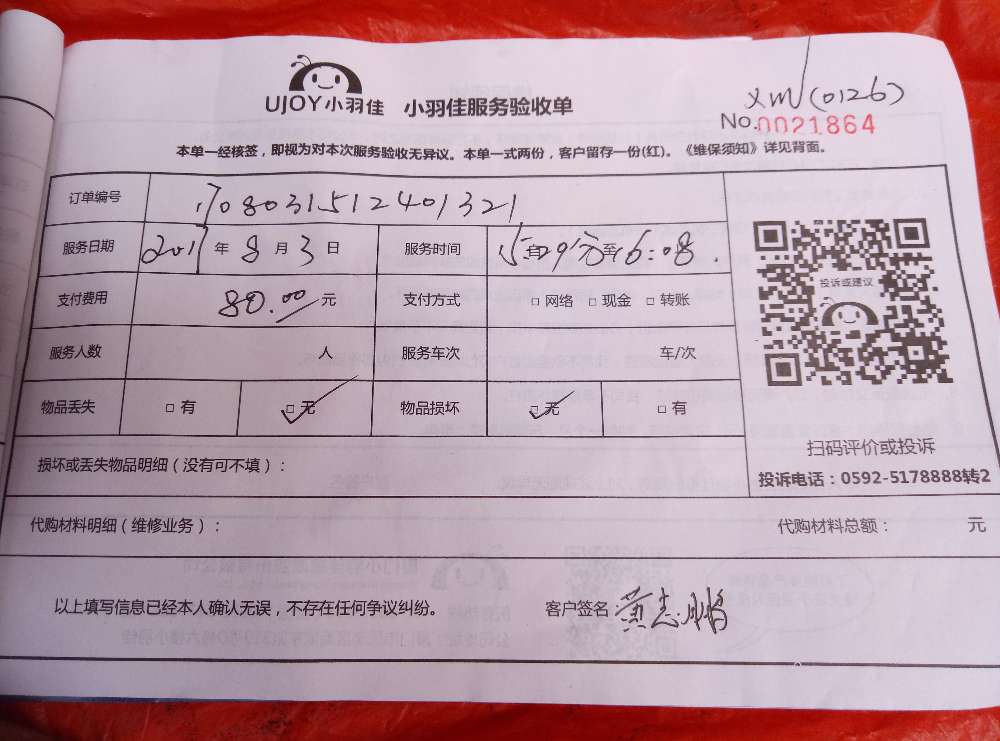 UJOY小羽佳 小羽佳服务验收单
XM(0126)
No.0021864
本单一经核签，即视为对本次服务验收无异议。本单一式两份，客户留存一份(红)。《维保须知》详见背面。
订单编号 1708031512401321
服务日期 2017 年 8 月 3 日 服务时间 至 16:08
支付费用 80.00 元 支付方式 □ 网络 □ 现金 □ 转账
服务人数 人 服务车次 车/次
物品丢失 □ 有 □ 无 物品损坏 □ 无 □ 有
投诉或建议
扫码评价或投诉
投诉电话：0592-5178888转2
损坏或丢失物品明细（没有可不填）：
代购材料明细（维修业务）： 代购材料总额： 元
以上填写信息已经本人确认无误，不存在任何争议纠纷。 客户签名：黄志鹏